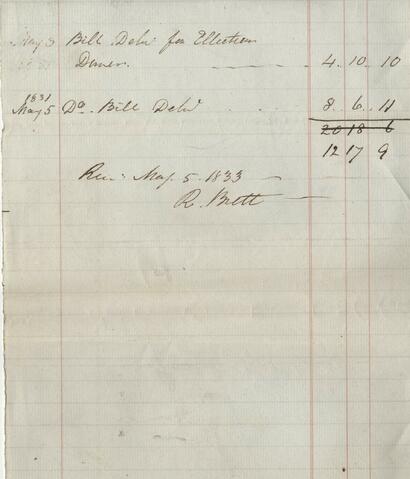 May 3 Bill Deld for Ellection
Diner. 4. 10. 10
1831
May 5 Do. Bill Deld 8. 6. 11
20 18 6
12 17 9
May. 5. 1833
R. Brett